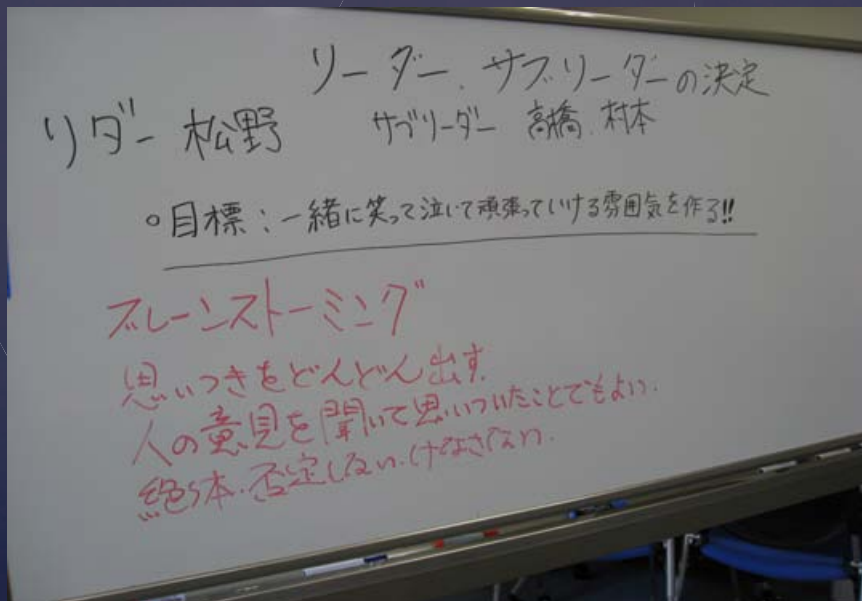 リーダー、サブリーダーの決定
リダー 松野 サブリーダー 高橋、村本
○目標：一緒に笑って泣いて頑張っていける雰囲気を作る!!
ブレーンストーミング
思いつきをどんどん出す。
人の意見を聞いて思いついたことでもよい。
否定しない、けなさない。